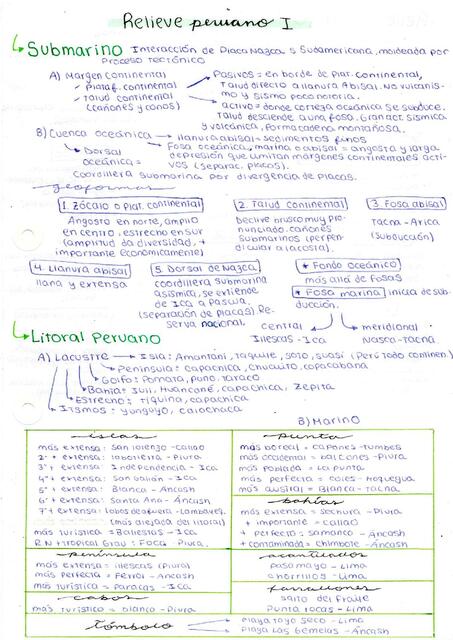 Relieve peruano I
Submarino Interacción de Placa Nazca y Sudamericana, moldeada por
Proceso tectónico
A) Margen continental
Plataf. continental
Talud continental
(cañones y conos)
Pasivos = en borde de plat. continental,
Talud directo a llanura Abisal. No vulcanis-
mo y sismo poco notoria.
activo = donde corteza oceánica se subduce.
Talud desciende a una fosa. Gran act. sísmica
y volcánica, forma cadena montañosa.
B) Cuenca oceánica
llanura abisal = sedimentos finos
Fosa oceánica, marina o abisal = angosta y larga
depresión que limitan márgenes continentales acti-
vos (separac. placas).
Dorsal
oceánica =
Coordillera submarina por divergencia de placas.
geoformas
1. Zócalo o plat. continental
Angosto en norte, amplio
en centro, estrecho en sur
(amplitud da diversidad, +
importante económicamente)
2. Talud continental
Declive brusco muy pro-
nunciado. cañones
submarinos (perpen-
dicular a la costa).
3. Fosa abisal
Tacna - Arica
(subducción)
4. Llanura abisal
llana y extensa
5. Dorsal de Nazca
coordillera submarina
asísmica, se extiende
de Ica a Pascua,
(separación de placas). Re-
serva nacional.
* Fondo oceánico
más alla de fosas
* Fosa marina inicia de sub-
ducción.
central
Illescas - Ica
meridional
Nasca - tacna
Litoral Peruano
A) Lacustre
Isla: Amantani, taquile, soto, suasi (Perú todo continen.)
Península: capachica, chucuito, copacabana
Golfo: Pomata, Puno, taraco
Bahía: Juli, Huancané, capachica, Zepita
Estrecho: tiquina, capachica
Itsmos: Yunguyo, caiochaca
B) Marino
islas
más extensa: San Lorenzo - callao
2° + extensa: lobos de tierra - Piura
3° + extensa: Independencia - Ica
4° + extensa: San Gallán - Ica
5° + extensa: Blanca - Áncash
6° + extensa: Santa Ana - Áncash
7° + extensa: lobos de afuera - Lambayeq.
(más alejada del litoral)
más turística = Ballestas - Ica
R.N + tropical Grau: Foca - Piura.
península
más extensa = Illescas (Piura)
más perfecta = Ferrol - Áncash
más turística = Paracas - Ica
cabos
más turístico = Blanco - Piura
punta
más boreal = capones - tumbes
más occidental = balcones - Piura
más poblada = la punta
más perfecta = coles - Moquegua
más austral = Blanca - Tacna.
bahías
más extensa = sechura - Piura
+ importante = callao
+ perfecta = samanco - Áncash
+ contaminada = Chimbote - Áncash
acantilados
Pasamayo - Lima
chorrillos - Lima
farallones
salto del Fraile
Punta rocas - Lima
tómbolo
Playa Yaya seco - Lima
Playa Las Gemelas - Áncash